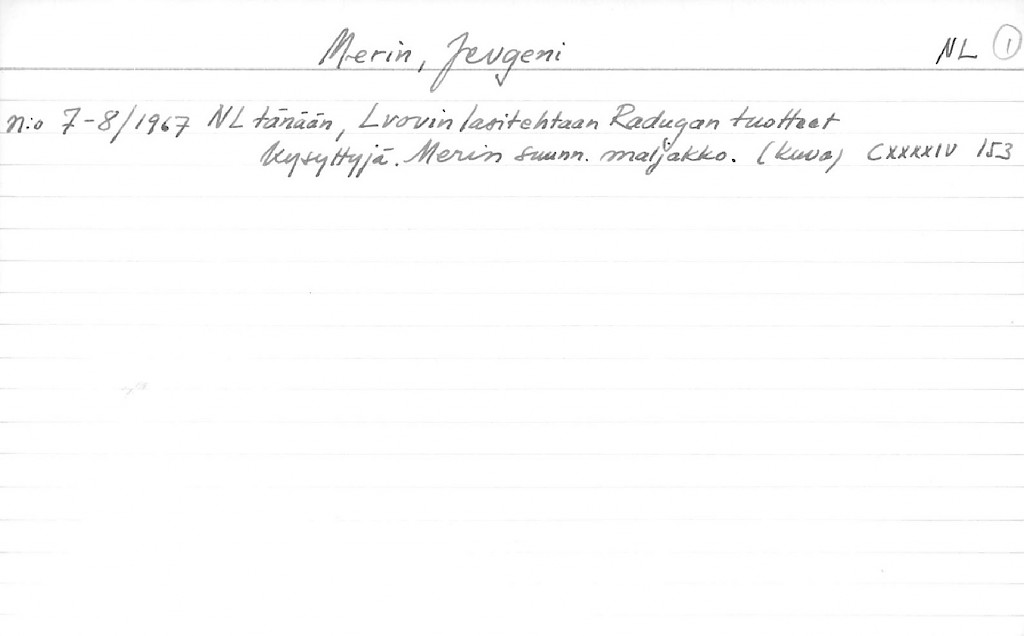 Merin, Jevgeni NL 1
n:o 7-8/1967 NL tänään, Lvovin lasitehtaan Radugan tuotteet
kysyttyjä. Merin suunn. maljakko. (kuva) CXXXXIV 153